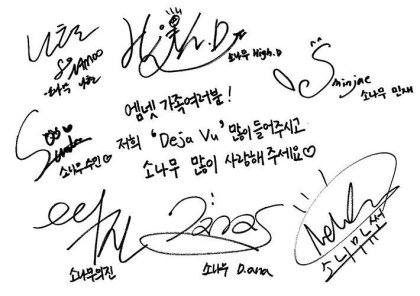 나현
SONAMOO
소나무 나현
High.D
소나무 High.D
Sminjae
소나무 민재
엠넷 가족여러분!
저희 'Deja Vu' 많이들어주시고
소나무 많이 사랑해주세요♡
소나무수민♡
의진
소나무의진
소나무 D.ana
New
소나무뉴썬